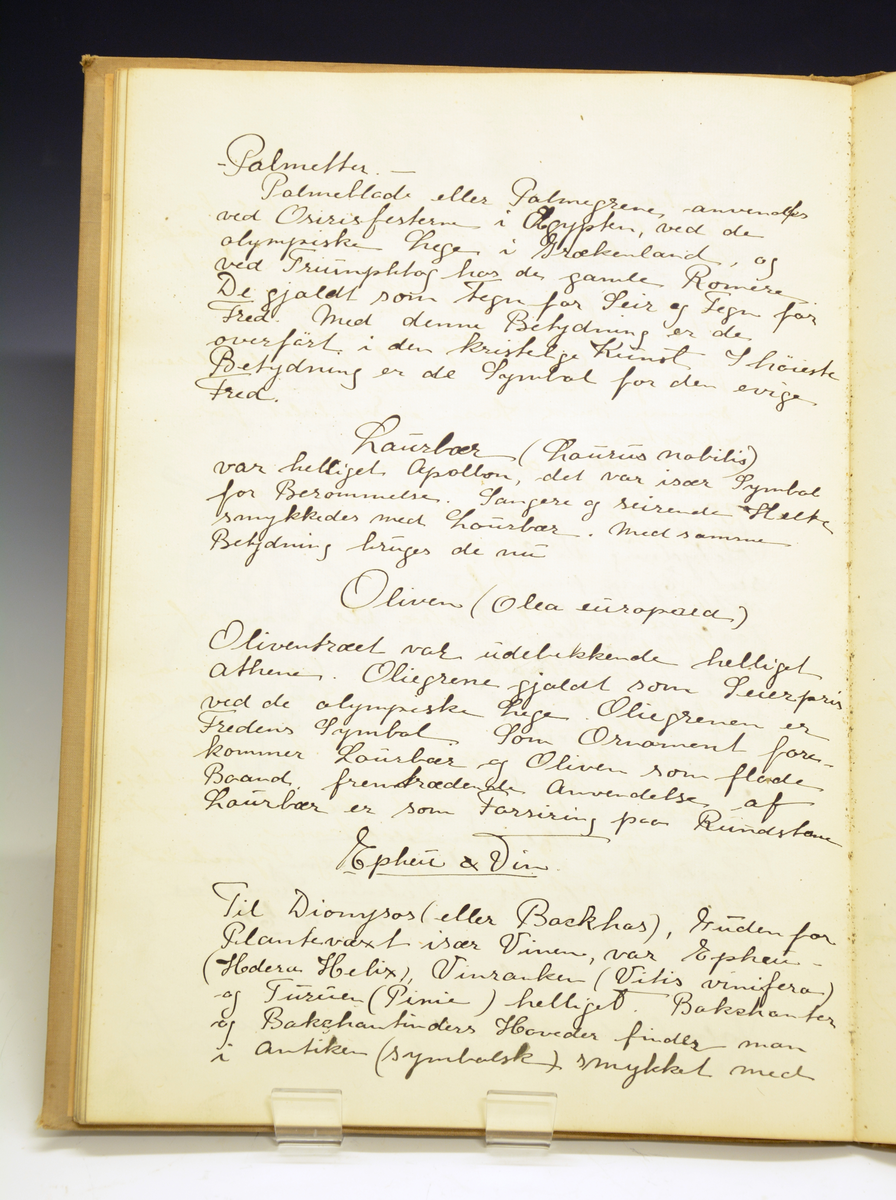 - Palmetter. -
Palmeblade eller Palmegrene anvendes
ved Osirisfesterne i Ægypten, ved de
olympiske Lege i Grækenland, og
ved Triumphtog hos de gamle Romere.
De gjaldt som Tegn for Seir og Tegn for
Fred. Med denne Betydning er de
overført i den kristelige Kunst. I høieste
Betydning er de Symbol for den evige
Fred.
Laurbær (Laurus nobilis)
var helliget Apollon, det var især Symbol
for Berømmelse. Sangere og seirende Helte
smykkedes med Laurbær. Med samme
Betydning bruges de nu
Oliven (Olea europaea)
Oliventræet var udelukkende helliget
Athene. Oliegrene gjaldt som Seierpris
ved de olympiske Lege. Oliegrenen er
Fredens Symbol. Som Ornament fore-
kommer Laurbær og Oliven som flade
Baand, fremtrædende Anvendelse af
Laurbær er som Forsiring paa Rundstave
Epheu & Vin.
Til Dionysos (eller Backhos), Guden for
Plantevæxt især Vinen, var Epheu -
(Hedera Helix), Vinranken (Vitis vinifera)
og (Pinie) helliget. Bakchanter
og Bakchantinders Hoveder finder man
i Antiken (symbolsk) smykket med